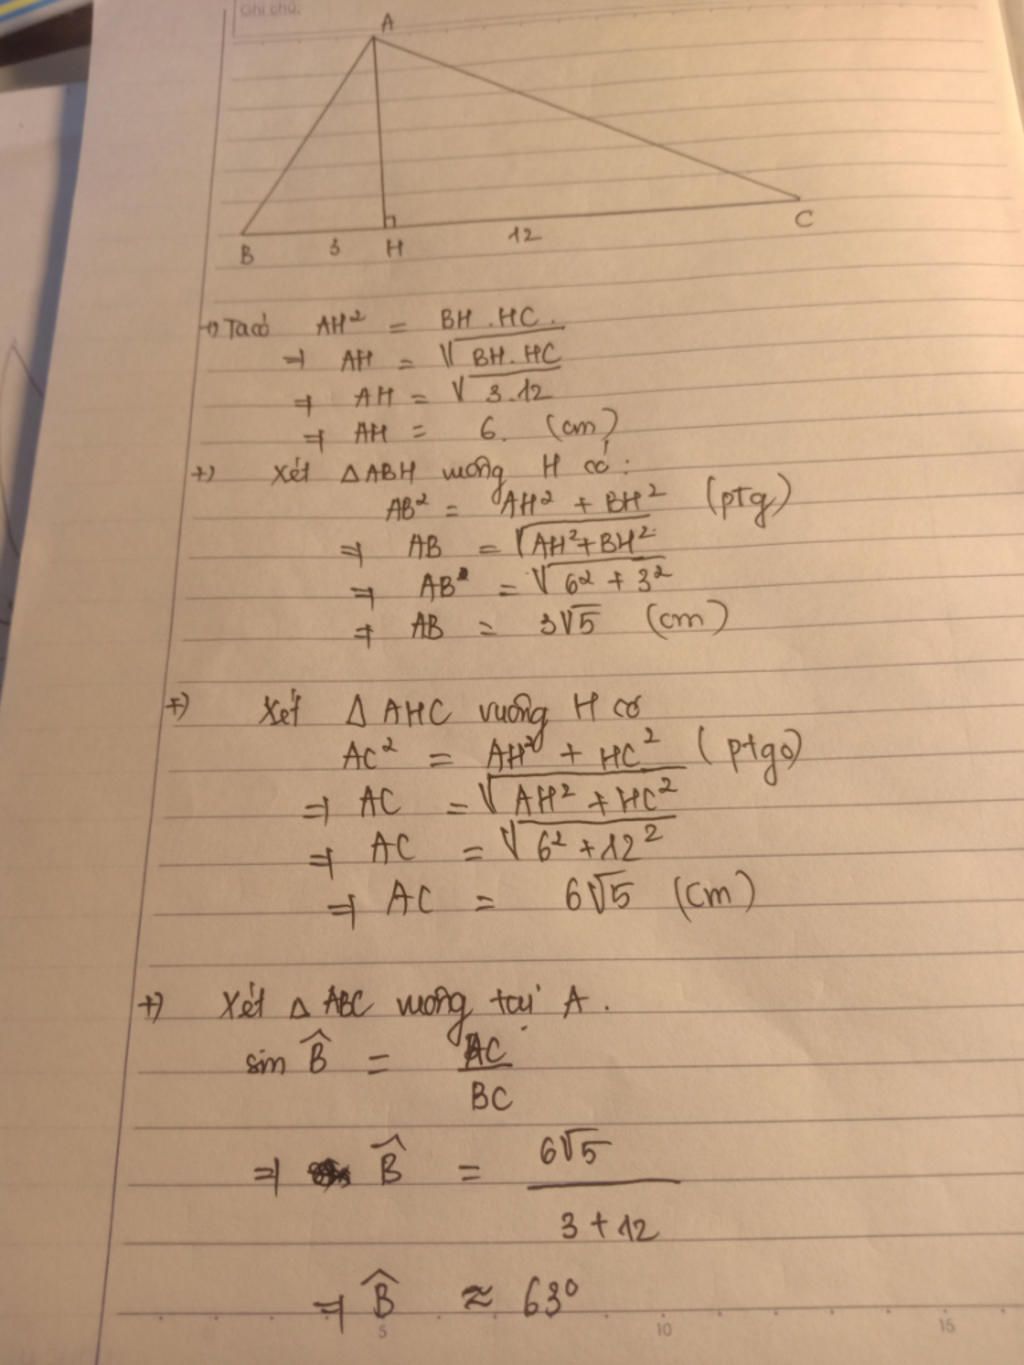 Ghi chú:
A
B 3 H 12 C
+) Ta có AH² = BH . HC .
⇒ AH = √BH. HC
⇒ AH = √3.12
⇒ AH = 6. (cm)
+) Xét ΔABH vuông H có :
AB² = AH² + BH² (ptg)
⇒ AB = √AH²+BH²
⇒ AB = √6² + 3²
⇒ AB = 3√5 (cm)
+) Xét Δ AHC vuông H có
AC² = AH² + HC² (ptgo)
⇒ AC = √AH² + HC²
⇒ AC = √6² + 12²
⇒ AC = 6√5 (cm)
+) Xét Δ ABC vuông tại A .
sin B̂ = AC/BC
⇒ B̂ = 6√5/3 + 12
⇒ B̂ ≈ 63°
5 10 15